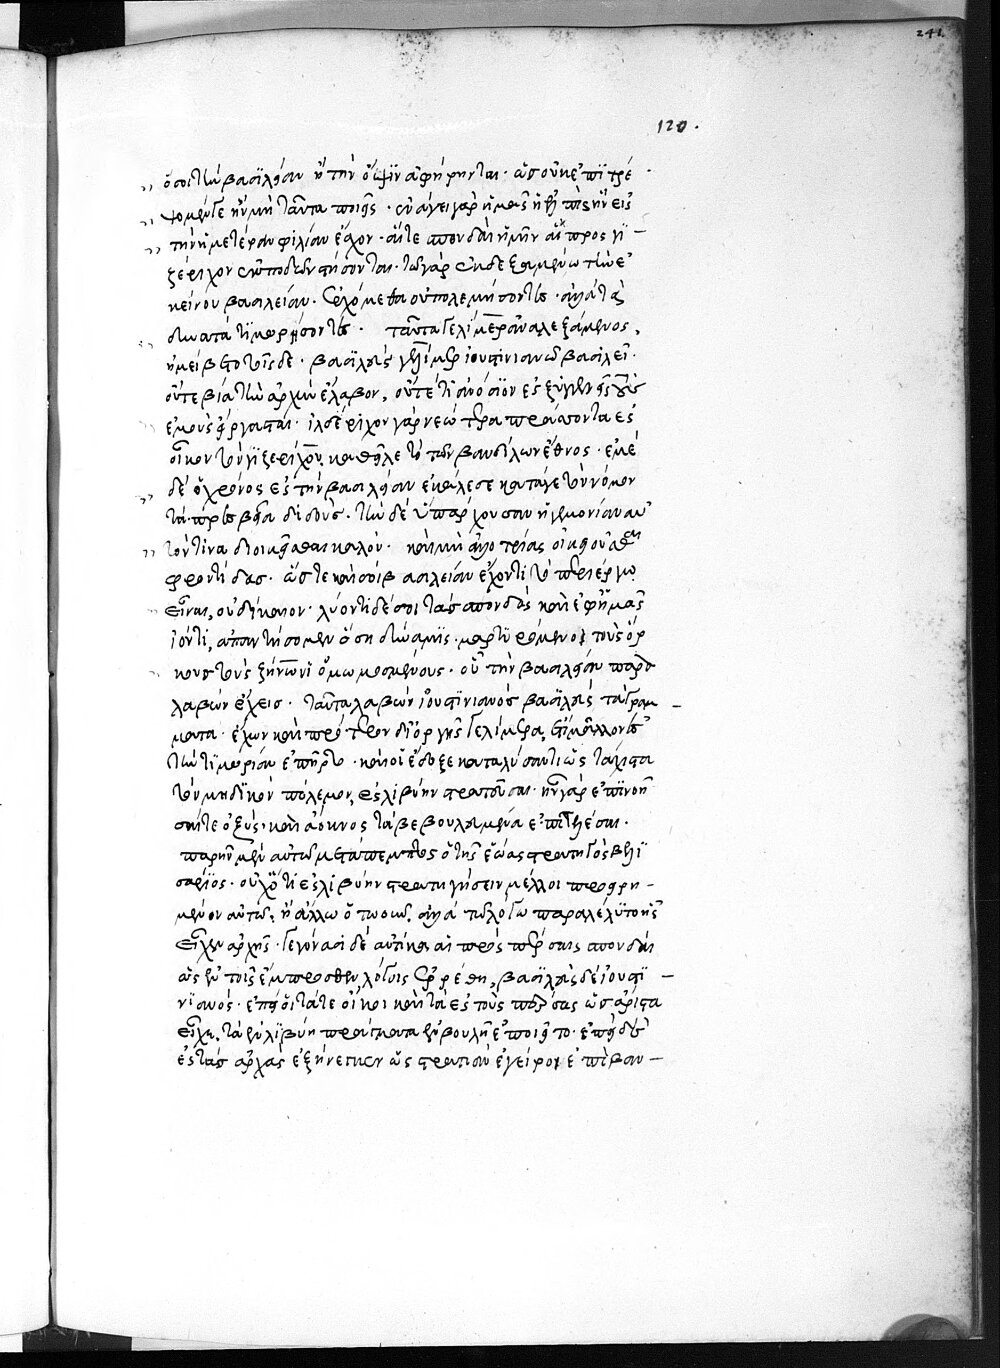 241
120.
ὅσοι τὴν βασιλείαν ἢ τὴν ὄψιν ἀφήρηνται· ὡς οὐκ ἐπιτρέ
ψομέν γε ἢν μὴ ταῦτα ποιῇς· ἐνάγει γὰρ ἡμᾶς ἡ ἐλπὶς ἣν εἰς
τὴν ἡμετέραν φιλίαν ἔσχον· αἵ τε σπονδαὶ ἡμῖν αἱ πρὸς γι
ζέριχον ἐκποδὼν στήσονται· τῷ γὰρ ἐκδεξαμένῳ τὴν ἐ
κείνου βασιλείαν· ἐρχόμεθα οὐ πολεμήσοντες· ἀλλὰ τὰ
δυνατὰ τιμωρήσοντες· ταῦτα γελίμερ ἀναλεξάμενος,
ἠμείβετο τοῖσδε· βασιλεὺς γελίμερ ἰουστινιανῷ βασιλεῖ·
οὔτε βίᾳ τὴν ἀρχὴν ἔλαβον, οὔτε τι ἀνόσιον ἐς ξυγγενεῖς τοὺς
ἐμοὺς εἴργασται· ἰλδέριχον γὰρ νεώτερα πράσσοντα ἐς
οἶκον τοῦ γιζερίχου, καθεῖλε τὸ τῶν βανδίλων ἔθνος· ἐμὲ
δὲ ὁ χρόνος ἐς τὴν βασιλείαν ἐκάλεσε κατά γε τὸν νόμον
τὰ πρεσβεῖα διδούς· τὴν δὲ ὑπάρχουσαν ἡγεμονίαν αὐ
τόν τινα διοικεῖσθαι καλόν· καὶ μὴ ἀλλοτρίας οἰκειοῦσθαι
φροντίδας· ὥστε καὶ σοὶ βασιλείαν ἔχοντι τὸ περιέργῳ
εἶναι, οὐ δίκαιον· λύοντι δέ σοι τὰς σπονδὰς καὶ ἐφ' ἡμᾶς
ἰόντι, ἀπαντήσομεν ὅση δύναμις· μαρτυρόμενοι τοὺς ὅρ
κους τοὺς ζήνωνι ὀμωμοσμένους· οὗ τὴν βασιλείαν παρα
λαβὼν ἔχεις· ταῦτα λαβὼν ἰουστινιανὸς βασιλεὺς τὰ γράμ
ματα· ἔχων καὶ πρότερον δι' ὀργῆς γελίμερα, ἔτι μᾶλλον ἐς
τὴν τιμωρίαν ἐπῆρτο· καί οἱ ἔδοξε καταλύσαντι ὡς τάχιστα
τὸν μηδικὸν πόλεμον, ἐς λιβύην στρατεῦσαι· ἦν γὰρ ἐπινοῆ
σαί τε ὀξύς· καὶ ἄοκνος τὰ βεβουλευμένα ἐπιτελέσαι·
παρῆν μὲν αὐτῷ μετάπεμπτος ὁ τῆς ἑῴας στρατηγὸς βελι
σάριος· οὐχ ὅτι ἐς λιβύην στρατηγήσειν μέλλοι προειρη
μένον αὐτῷ, ἢ ἄλλῳ ὅτῳ οὖν, ἀλλὰ τῷ λόγῳ παραλέλυτο ἧς
εἶχεν ἀρχῆς· γεγόνασι δὲ αὐτίκα αἱ πρὸς πέρσας σπονδαὶ
ὡς ἐν τοῖς ἔμπροσθεν λόγοις ἐρρέθη, βασιλεὺς δὲ ἰουστι
νιανός· ἐπεί οἱ τά τε οἴκοι καὶ τὰ ἐς τοὺς πέρσας ὡς ἄριστα
εἶχε, τὰ ἐν λιβύῃ πράγματα ἐν βουλῇ ἐποιεῖτο· ἐπεὶ δὲ
ἐς τὰς ἀρχὰς ἐξήνεγκεν ὡς στρατιὰν ἐγείροι ἐπί βαν